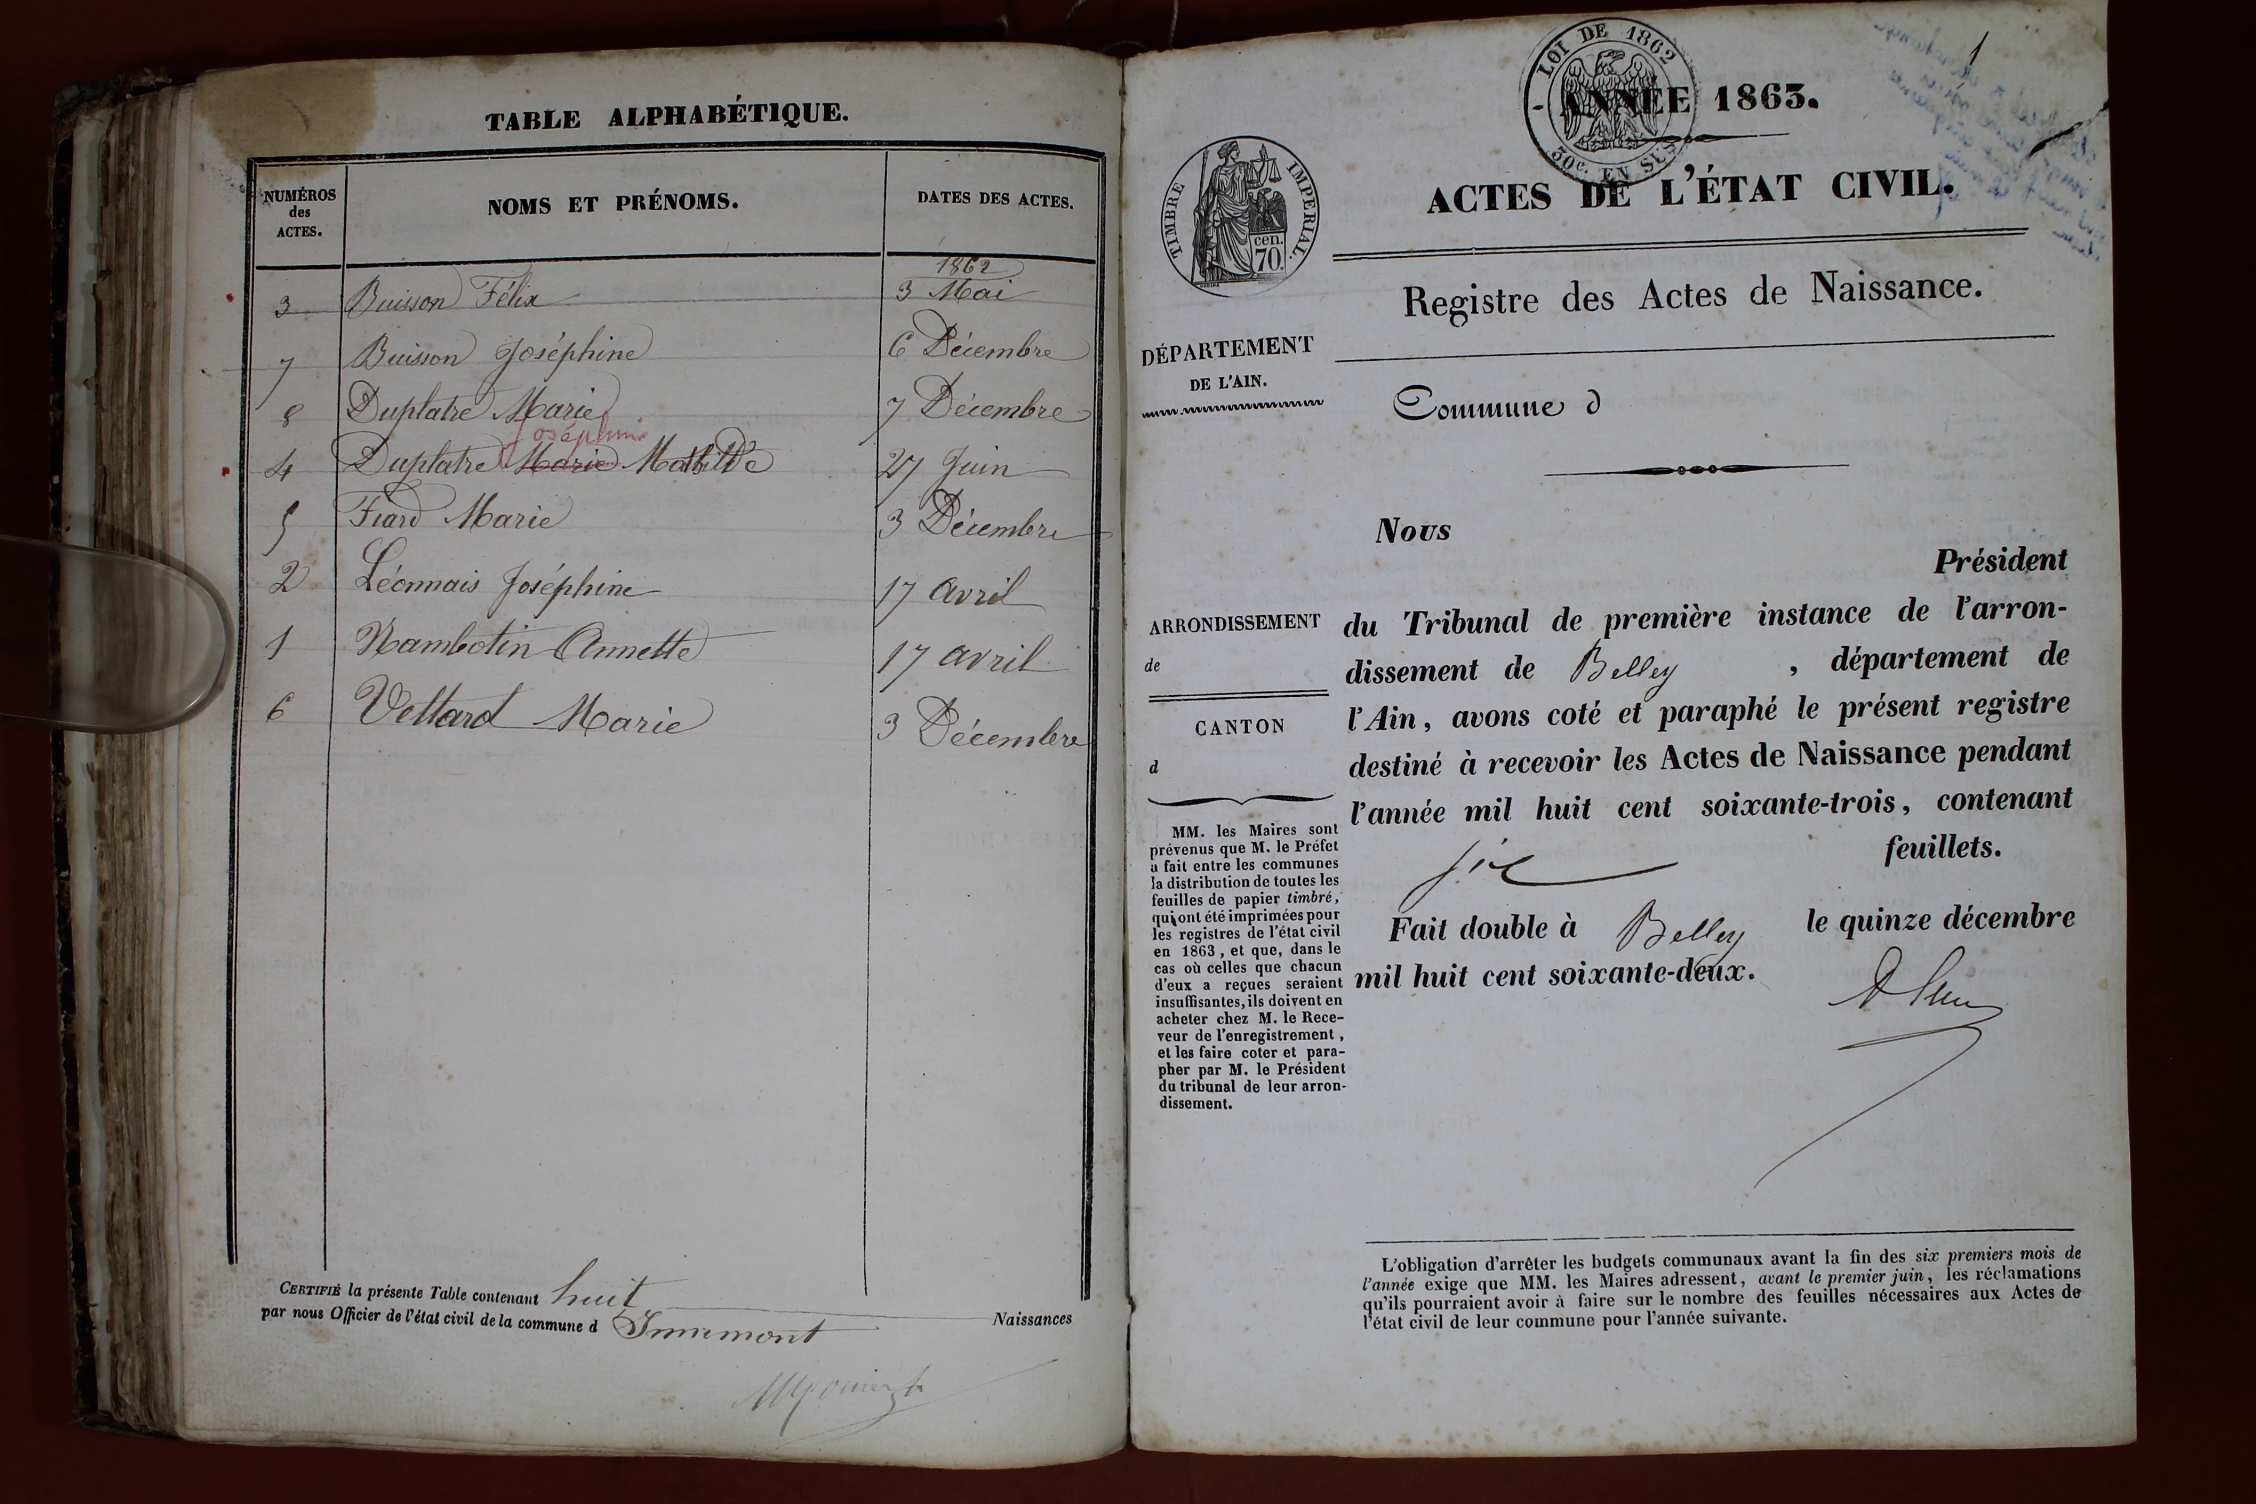 TABLE ALPHABÉTIQUE.
NUMÉROS
des
ACTES.
NOMS ET PRÉNOMS.
DATES DES ACTES.
1862
3 Buisson Félix 3 Mai
7 Buisson Joséphine 6 Décembre
8 Duplatre Marie 7 Décembre
Joséphine
4 Duplatre Marie Mathilde 27 Juin
5 Fiard Marie 3 Décembre
2 Léonnais Joséphine 17 avril
1 Nambotin Annette 17 avril
6 Vettard Marie 3 Décembre
CERTIFIÉ la présente Table contenant huit
Naissances
par nous Officier de l'état civil de la commune d Innimont
1
LOI DE 1862
50c. EN SUS
ANNÉE 1863.
TIMBRE IMPERIAL.
cen.
70.
ACTES DE L'ÉTAT CIVIL.
Registre des Actes de Naissance.
DÉPARTEMENT
DE L'AIN.
Commune d
Nous
Président
ARRONDISSEMENT
de
CANTON
d
du Tribunal de première instance de l'arron-
dissement de Belley , département de
l'Ain, avons coté et paraphé le présent registre
destiné à recevoir les Actes de Naissance pendant
l'année mil huit cent soixante-trois, contenant
six feuillets.
Fait double à Belley le quinze décembre
mil huit cent soixante-deux.
MM. les Maires sont
prévenus que M. le Préfet
a fait entre les communes
la distribution de toutes les
feuilles de papier timbré,
qui ont été imprimées pour
les registres de l'état civil
en 1863, et que, dans le
cas où celles que chacun
d'eux a reçues seraient
insuffisantes, ils doivent en
acheter chez M. le Rece-
veur de l'enregistrement,
et les faire coter et para-
pher par M. le Président
du tribunal de leur arron-
dissement.
L'obligation d'arrêter les budgets communaux avant la fin des six premiers mois de
l'année exige que MM. les Maires adressent, avant le premier juin, les réclamations
qu'ils pourraient avoir à faire sur le nombre des feuilles nécessaires aux Actes de
l'état civil de leur commune pour l'année suivante.